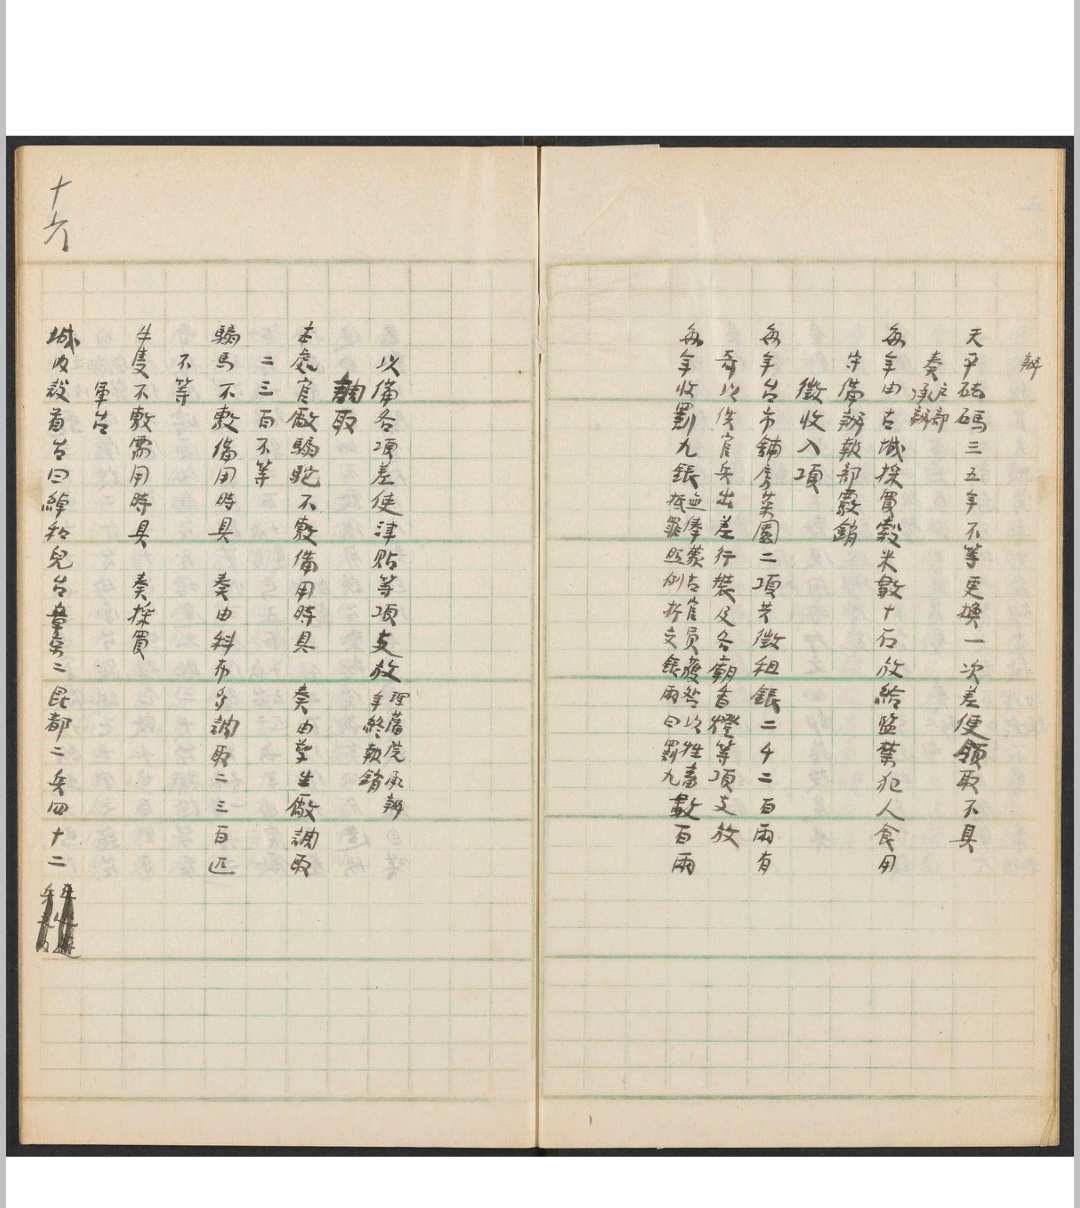 辦
天平砝碼三五年不等更換一次差便領取不具
奏戶部承辦
每年由古城採買穀米數十石放給監禁犯人食用
守備辦報部覈銷
徵收入項
每年台市鋪房菜園二項共徵租銀二千二百兩有
奇以俟官兵出差行裝及各廟香燈等項支放
每年收罰九銀並俸蒙古官員獲咎以牲畜數百兩
抵罪照例折交銀兩曰罰九
以備各項差使津貼等項支放理藩院承辦
年終報銷
調取
本處官廠騸駝不敷備用時具 奏由孳生廠調取
二三百不等
騸馬不敷備用時具 奏由科布多調取二三百匹
不等
牛隻不敷需用時具 奏採買
軍台
城內設首台曰綽和兒台章京二昆都二兵四十二
十六